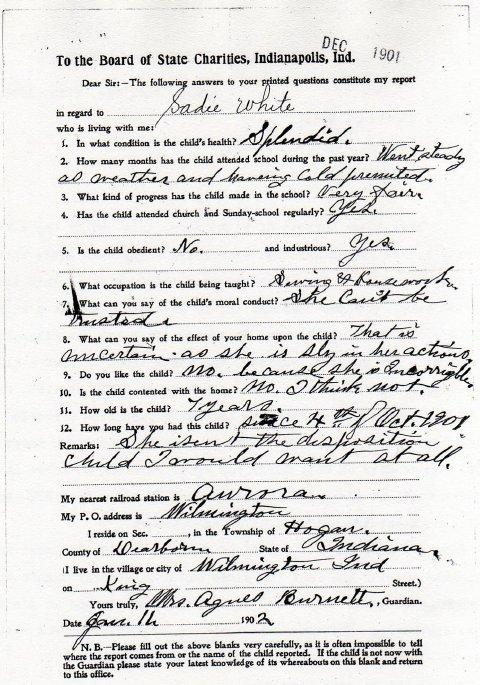 DEC 1901
To the Board of State Charities, Indianapolis, Ind.
Dear Sir:—The following answers to your printed questions constitute my report
in regard to Sadie White
who is living with me:
1. In what condition is the child's health? Splendid.
2. How many months has the child attended school during the past year? Went steady
as weather and haveing Cold premited.
3. What kind of progress has the child made in the school? Very fair.
4. Has the child attended church and Sunday-school regularly? Yes.
5. Is the child obedient? No. and industrious? Yes.
6. What occupation is the child being taught? Sewing & Housework.
7. What can you say of the child's moral conduct? She Can't be
trusted.
8. What can you say of the effect of your home upon the child? That is
uncertain as she is sly in her actions
9. Do you like the child? No. because she is Incorrigible
10. Is the child contented with the home? No. I think not.
11. How old is the child? 7 years.
12. How long have you had this child? since 4th of Oct. 1901
Remarks: She isent the disposition
child I would want at all.
My nearest railroad station is Aurora.
My P. O. address is Wilmington
I reside on Sec. , in the Township of Hogan.
County of Dearborn State of Indiana.
(I live in the village or city of Wilmington Ind
on King Street.)
Yours truly, Mrs. Agnes Burnett, Guardian.
Date Jan. 16 1902
N. B.—Please fill out the above blanks very carefully, as it is often impossible to tell
where the report comes from or the name of the child reported. If the child is not now with
the Guardian please state your latest knowledge of its whereabouts on this blank and return
to this office.